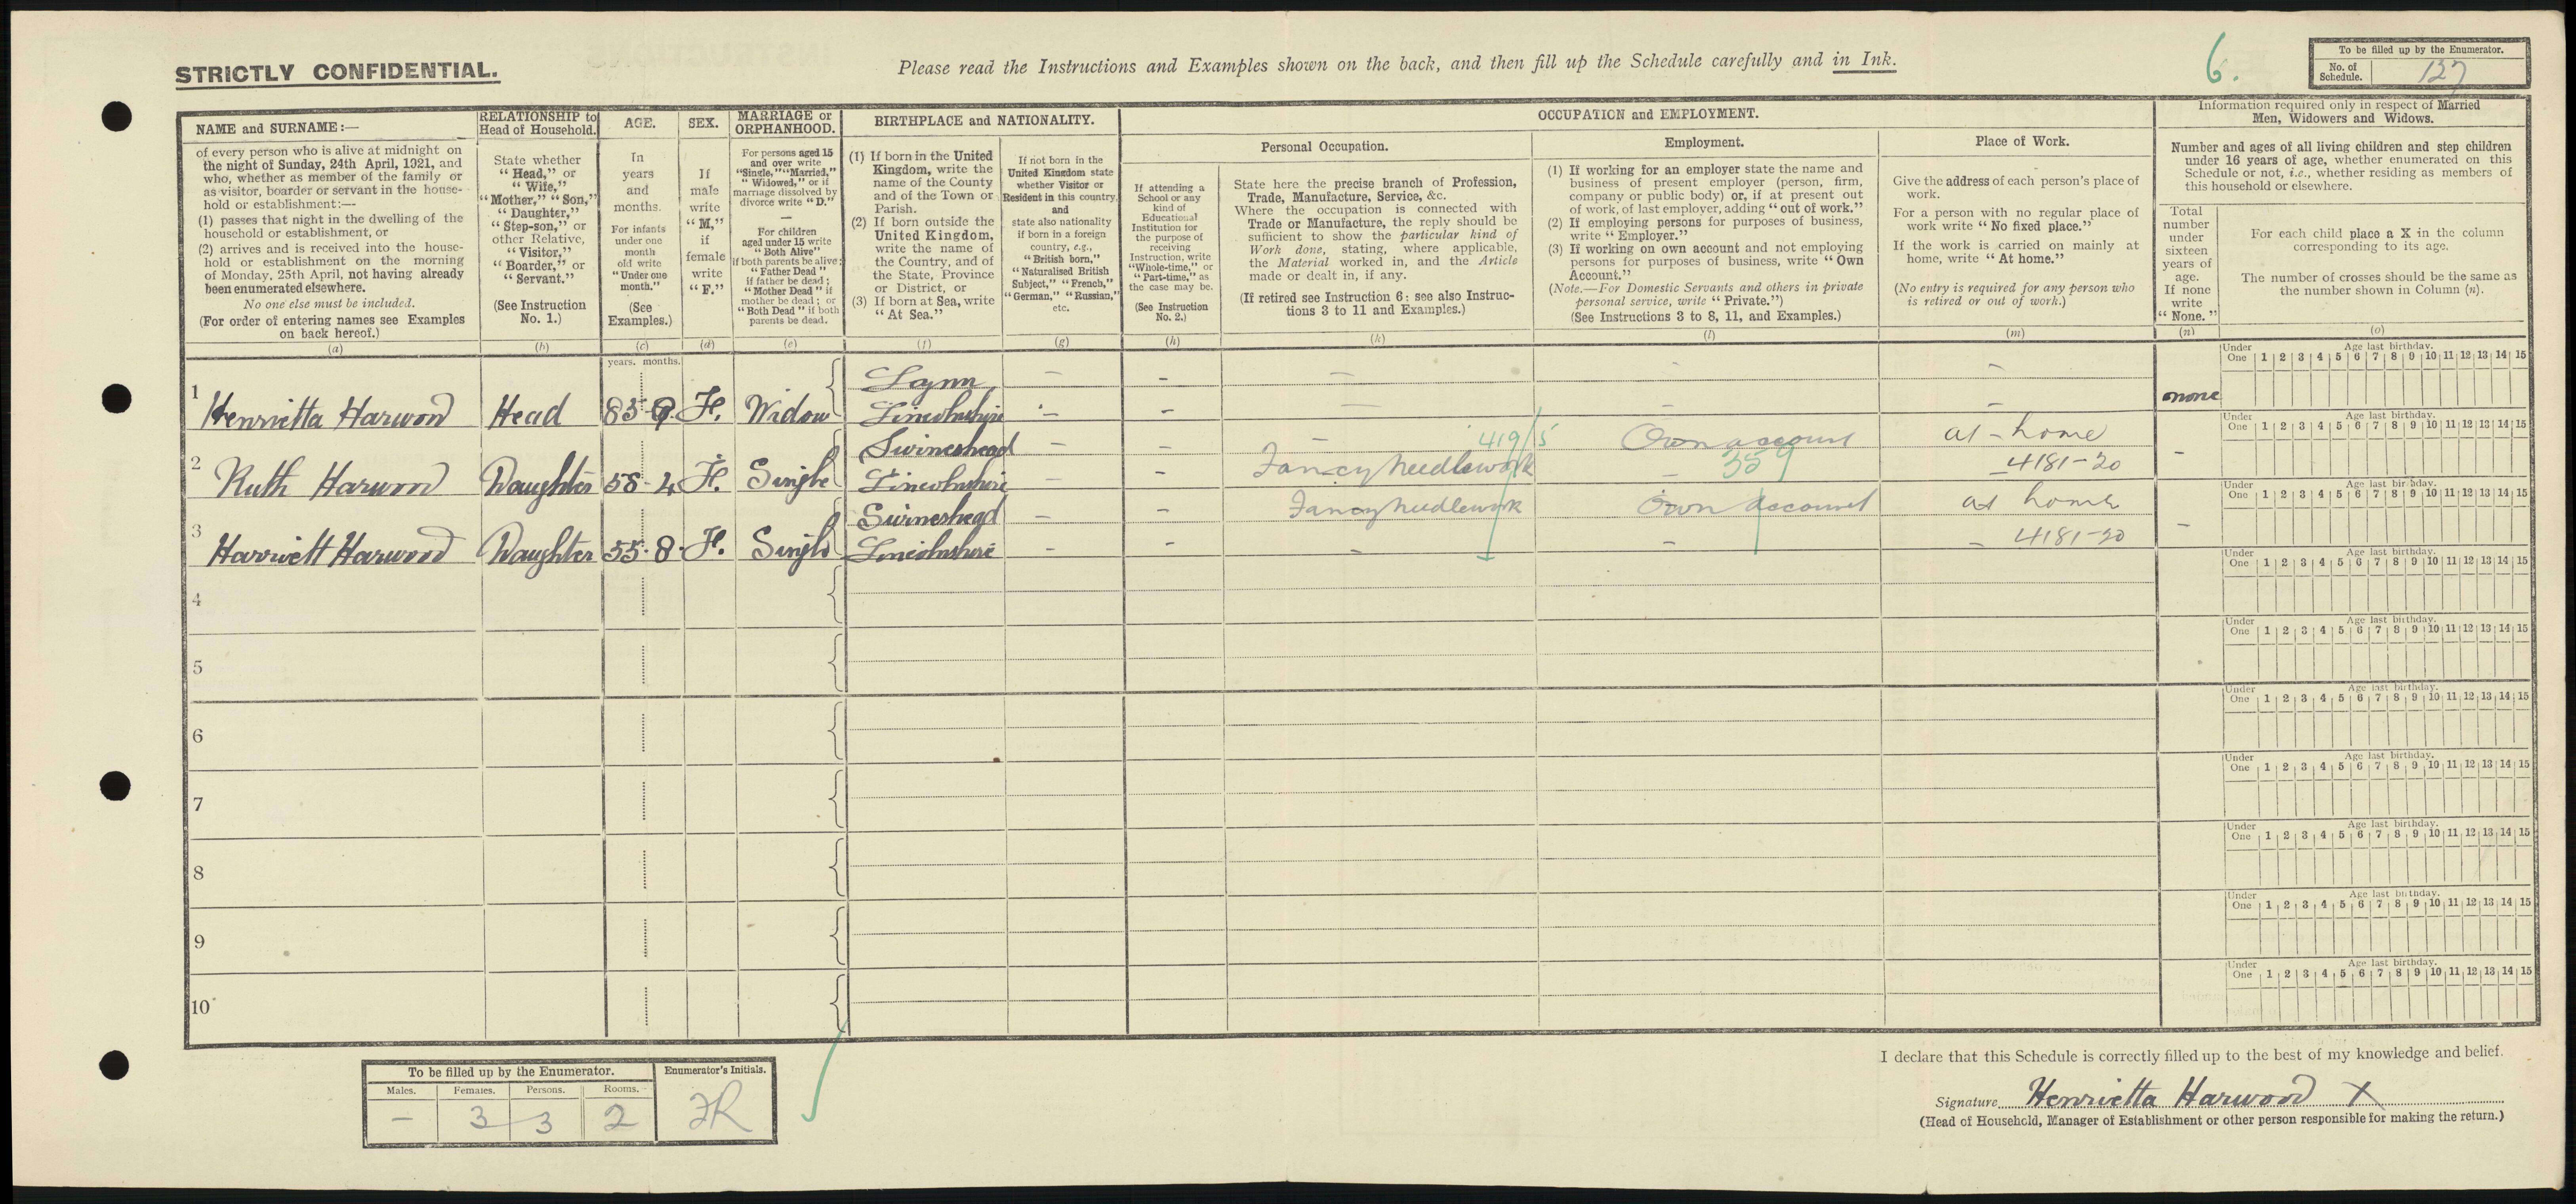 STRICTLY CONFIDENTIAL.
Please read the Instructions and Examples shown on the back, and then fill up the Schedule carefully and in Ink.
6.
To be filled up by the Enumerator.
No. of Schedule. 127
NAME and SURNAME:—
of every person who is alive at midnight on
the night of Sunday, 24th April, 1921, and
who, whether as member of the family or
as visitor, boarder or servant in the house-
hold or establishment:—
(1) passes that night in the dwelling of the
household or establishment, or
(2) arrives and is received into the house-
hold or establishment on the morning
of Monday, 25th April, not having already
been enumerated elsewhere.
No one else must be included.
(For order of entering names see Examples
on back hereof.)
(a)
RELATIONSHIP to
Head of Household.
State whether
"Head," or
"Wife,"
"Mother," "Son,"
"Daughter,"
"Step-son," or
other Relative,
"Visitor,"
"Boarder," or
"Servant."
(See Instruction
No. 1.)
(b)
AGE.
In
years
and
months.
For infants
under one
month
old write
"Under one
month."
(See
Examples.)
(c)
SEX.
If
male
write
"M,"
if
female
write
"F."
(d)
MARRIAGE or
ORPHANHOOD.
For persons aged 15
and over write
"Single," "Married,"
"Widowed," or if
marriage dissolved by
divorce write "D."
—
For children
aged under 15 write
"Both Alive"
if both parents be alive;
"Father Dead"
if father be dead;
"Mother Dead" if
mother be dead; or
"Both Dead" if both
parents be dead.
(e)
BIRTHPLACE and NATIONALITY.
(1) If born in the United
Kingdom, write the
name of the County
and of the Town or
Parish.
(2) If born outside the
United Kingdom,
write the name of
the Country, and of
the State, Province
or District, or
(3) If born at Sea, write
"At Sea."
(f)
If not born in the
United Kingdom state
whether Visitor or
Resident in this country,
and
state also nationality
if born in a foreign
country, e.g.,
"British born,"
"Naturalised British
Subject," "French,"
"German," "Russian,"
etc.
(g)
OCCUPATION and EMPLOYMENT.
Personal Occupation.
If attending a
School or any
kind of
Educational
Institution for
the purpose of
receiving
Instruction, write
"Whole-time," or
"Part-time," as
the case may be.
(See Instruction
No. 2.)
(h)
State here the precise branch of Profession,
Trade, Manufacture, Service, &c.
Where the occupation is connected with
Trade or Manufacture, the reply should be
sufficient to show the particular kind of
Work done, stating, where applicable,
the Material worked in, and the Article
made or dealt in, if any.
(If retired see Instruction 6: see also Instruc-
tions 3 to 11 and Examples.)
(k)
Employment.
(1) If working for an employer state the name and
business of present employer (person, firm,
company or public body) or, if at present out
of work, of last employer, adding "out of work."
(2) If employing persons for purposes of business,
write "Employer."
(3) If working on own account and not employing
persons for purposes of business, write "Own
Account."
(Note.—For Domestic Servants and others in private
personal service, write "Private.")
(See Instructions 3 to 8, 11, and Examples.)
(l)
Place of Work.
Give the address of each person's place of
work.
For a person with no regular place of
work write "No fixed place."
If the work is carried on mainly at
home, write "At home."
(No entry is required for any person who
is retired or out of work.)
(m)
Information required only in respect of Married
Men, Widowers and Widows.
Number and ages of all living children and step children
under 16 years of age, whether enumerated on this
Schedule or not, i.e., whether residing as members of
this household or elsewhere.
Total
number
under
sixteen
years of
age.
If none
write
"None."
(n)
For each child place a X in the column
corresponding to its age.
The number of crosses should be the same as
the number shown in Column (n).
(o)
years. months.
Under One Age last birthday. 1 2 3 4 5 6 7 8 9 10 11 12 13 14 15
1 Henrietta Harwood Head F. Widow Lynn Lincolnshire none
Under One Age last birthday. 1 2 3 4 5 6 7 8 9 10 11 12 13 14 15
2 Ruth Harwood Daughter 58-4 F. Single Swineshead Lincolnshire Fancy Needlework 419/5 Own account 359 at-home 4181-20
Under One Age last birthday. 1 2 3 4 5 6 7 8 9 10 11 12 13 14 15
3 Harriett Harwood Daughter 55-8- F. Single Swineshead Lincolnshire Fancy Needlework Own account at home 4181-20
Under One Age last birthday. 1 2 3 4 5 6 7 8 9 10 11 12 13 14 15
4
Under One Age last birthday. 1 2 3 4 5 6 7 8 9 10 11 12 13 14 15
5
Under One Age last birthday. 1 2 3 4 5 6 7 8 9 10 11 12 13 14 15
6
Under One Age last birthday. 1 2 3 4 5 6 7 8 9 10 11 12 13 14 15
7
Under One Age last birthday. 1 2 3 4 5 6 7 8 9 10 11 12 13 14 15
8
Under One Age last birthday. 1 2 3 4 5 6 7 8 9 10 11 12 13 14 15
9
Under One Age last birthday. 1 2 3 4 5 6 7 8 9 10 11 12 13 14 15
10
To be filled up by the Enumerator. Enumerator's Initials.
Males. Females. Persons. Rooms.
— 3 3 2 FR
I declare that this Schedule is correctly filled up to the best of my knowledge and belief.
Signature Henrietta Harwood X
(Head of Household, Manager of Establishment or other person responsible for making the return.)